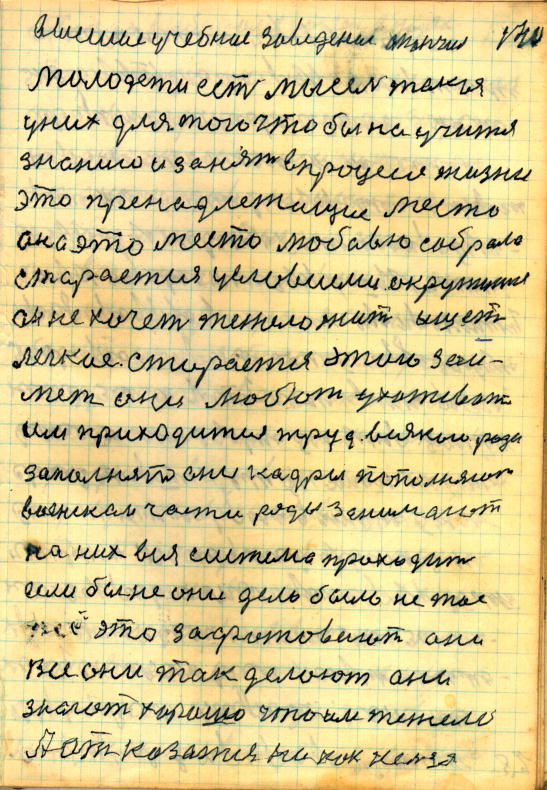 Высшие учебные заведение окончил 170
Молодежи есть мысел такья
у них для того чтобы на учится
знанию и занять в процесе жизни
это пренадлежащие место
она это место любовью собрало
старается условиеми окружится
он не хочет тежело жит ищет
легкое. старается этого зай-
мет они любют ухаживат
им приходится труд всякого рода
заполнять они кадры пополняют
воински части ряды занимают
на них вся система проходит
если бы не они дело было не тое
всё это зафотовеают они
все они так делоют они
знают хорошо что им тежело
А отказатся ни как нелзя